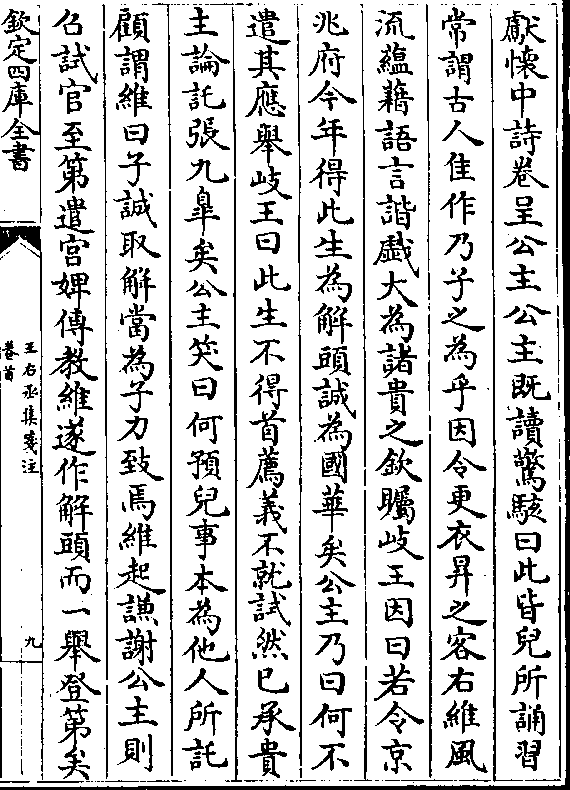 獻懷中詩卷呈公主公主既讀驚駭曰此皆兒所誦習
常謂古人佳作乃子之為乎因令更衣昇之客右維風
流蘊藉語言諧戲大為諸貴之欽矚岐王因曰若令京
兆府今年得此生為解頭誠為國華矣公主乃曰何不
遣其應舉岐王曰此生不得首薦義不就試然已承貴
主論託張九臯矣公主笑曰何預兒事本為他人所託
顧謂維曰子誠取解當為子力致焉維起謙謝公主則
召試官至第遣宮婢傳教維遂作解頭而一舉登第矣
欽定四庫全書
王右丞集箋注
卷首
九